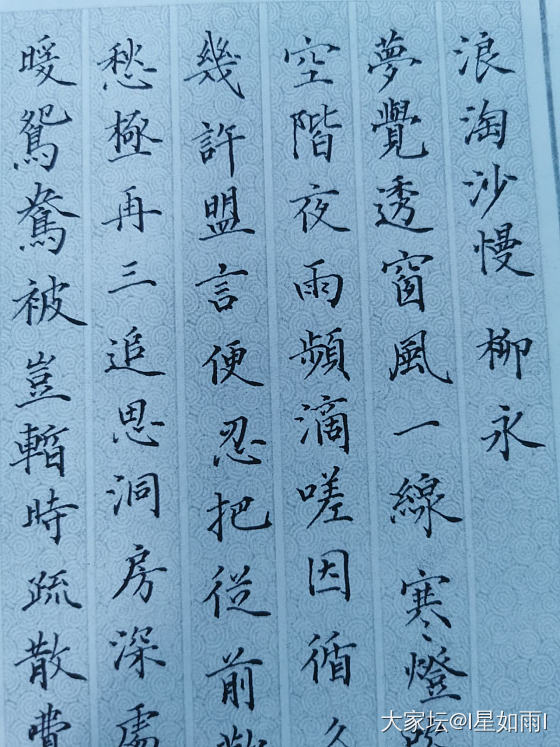 浪淘沙慢 柳永
夢覺透窗風一線寒燈
空階夜雨頻滴嗟因循久
幾許盟言便忍把従前
愁極再三追思洞房深處
暖鴛鴦被豈暫時疏散費
大家坛@I星如雨I